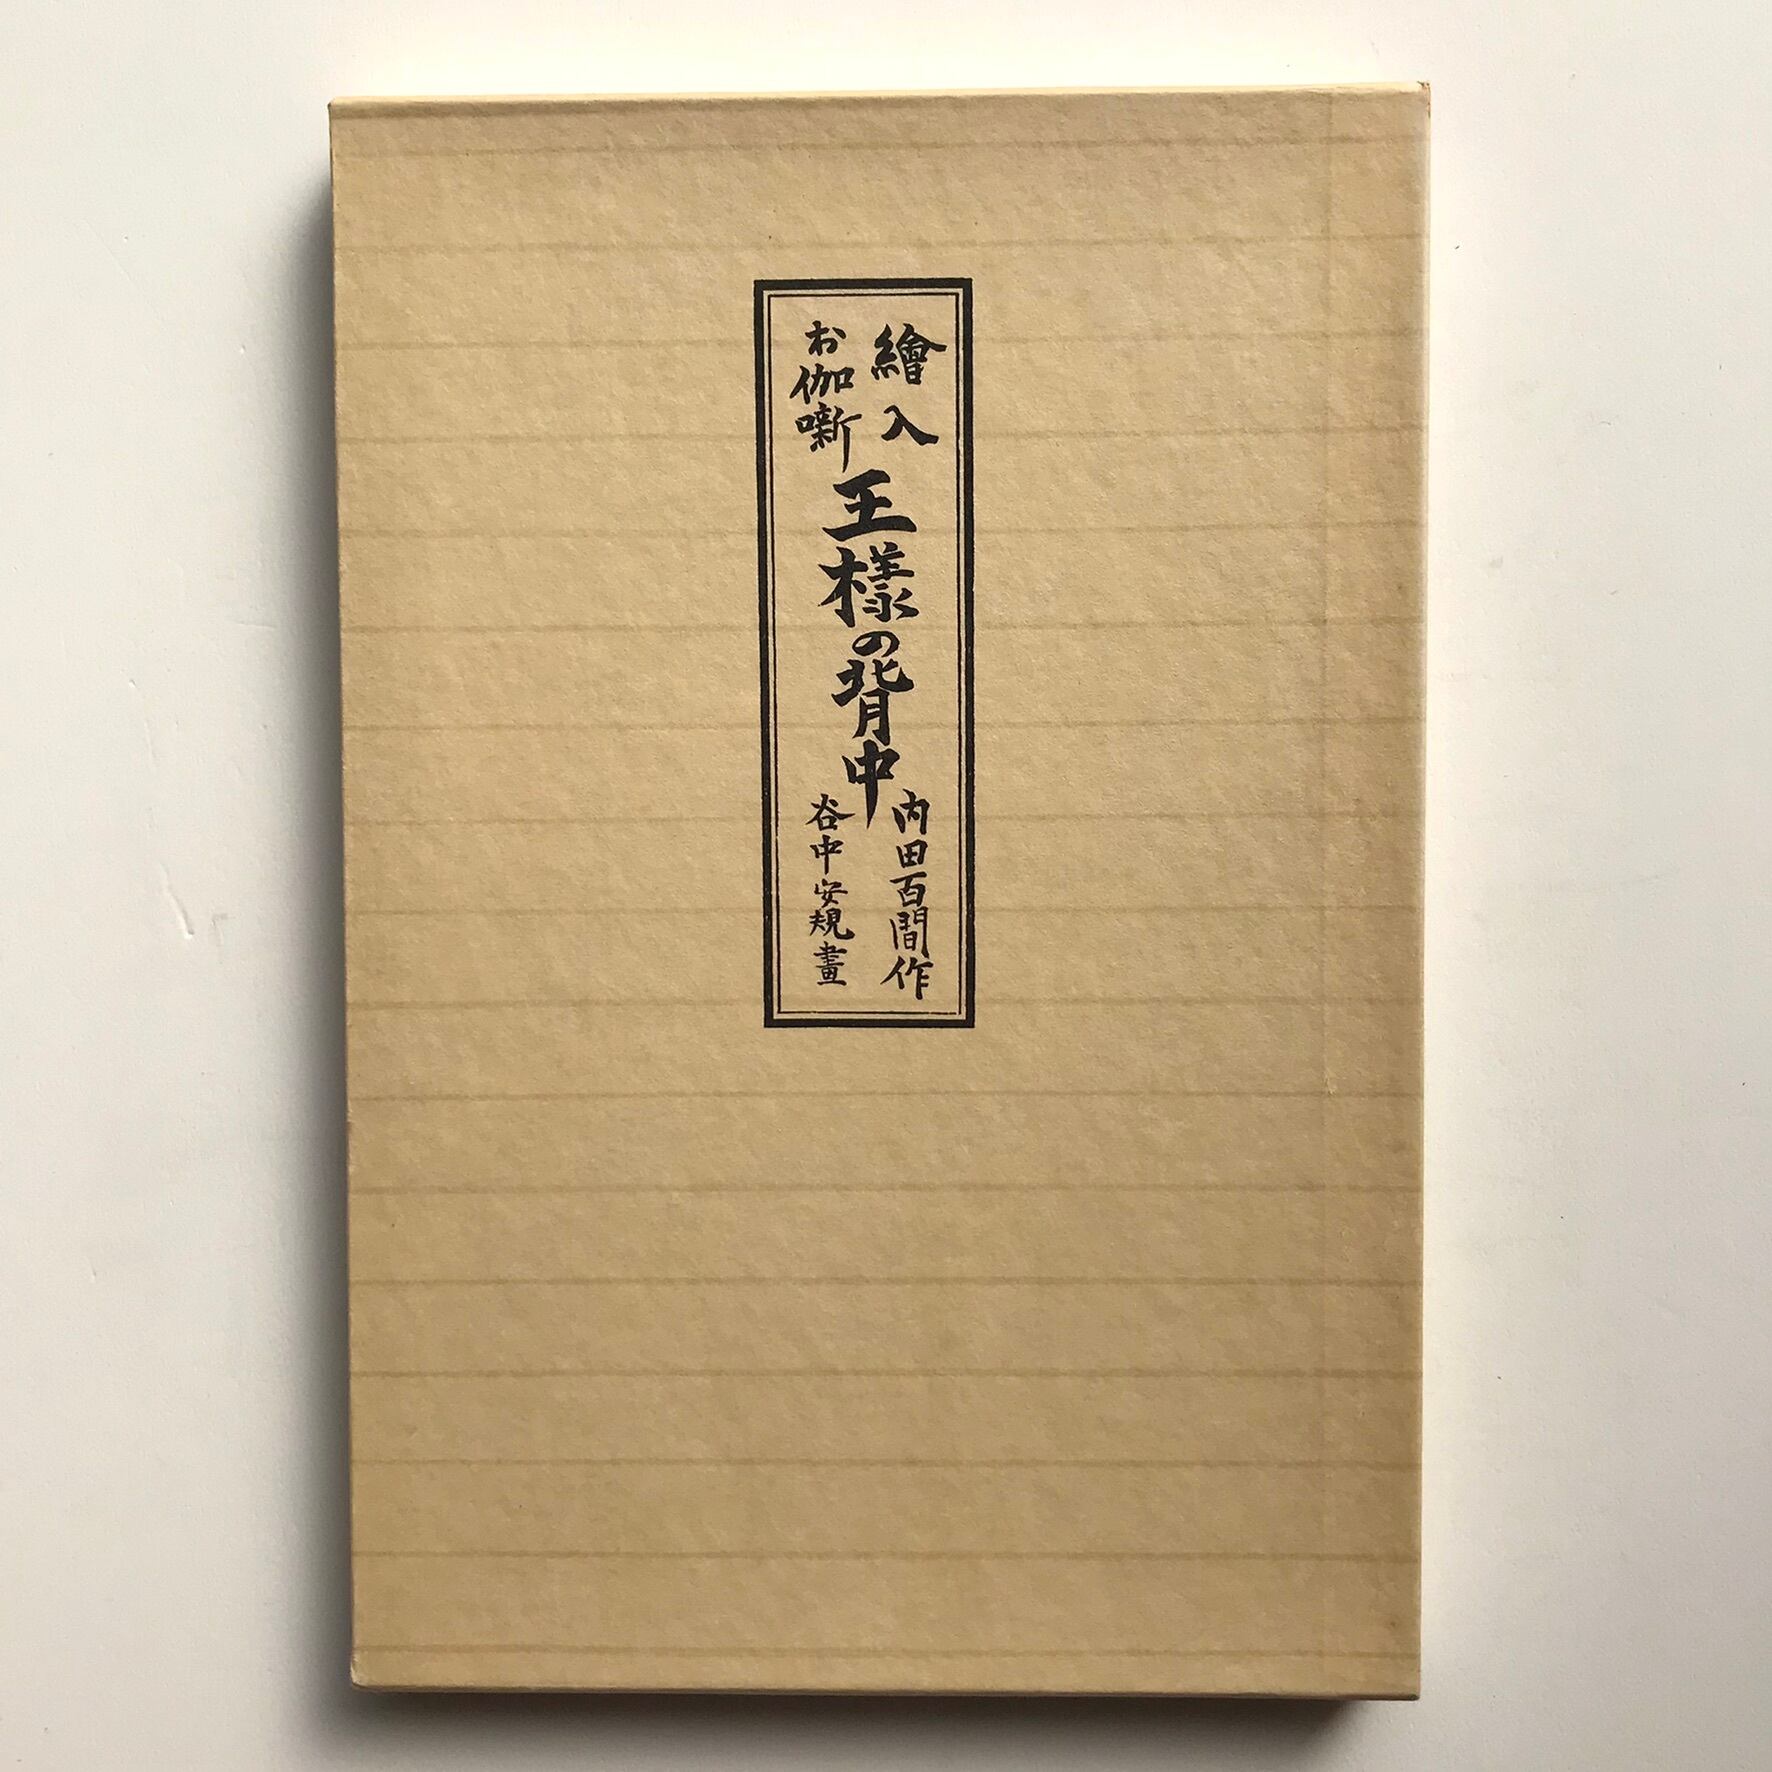 繪入
お伽噺
王様の背中
内田百間作
谷中安規畫